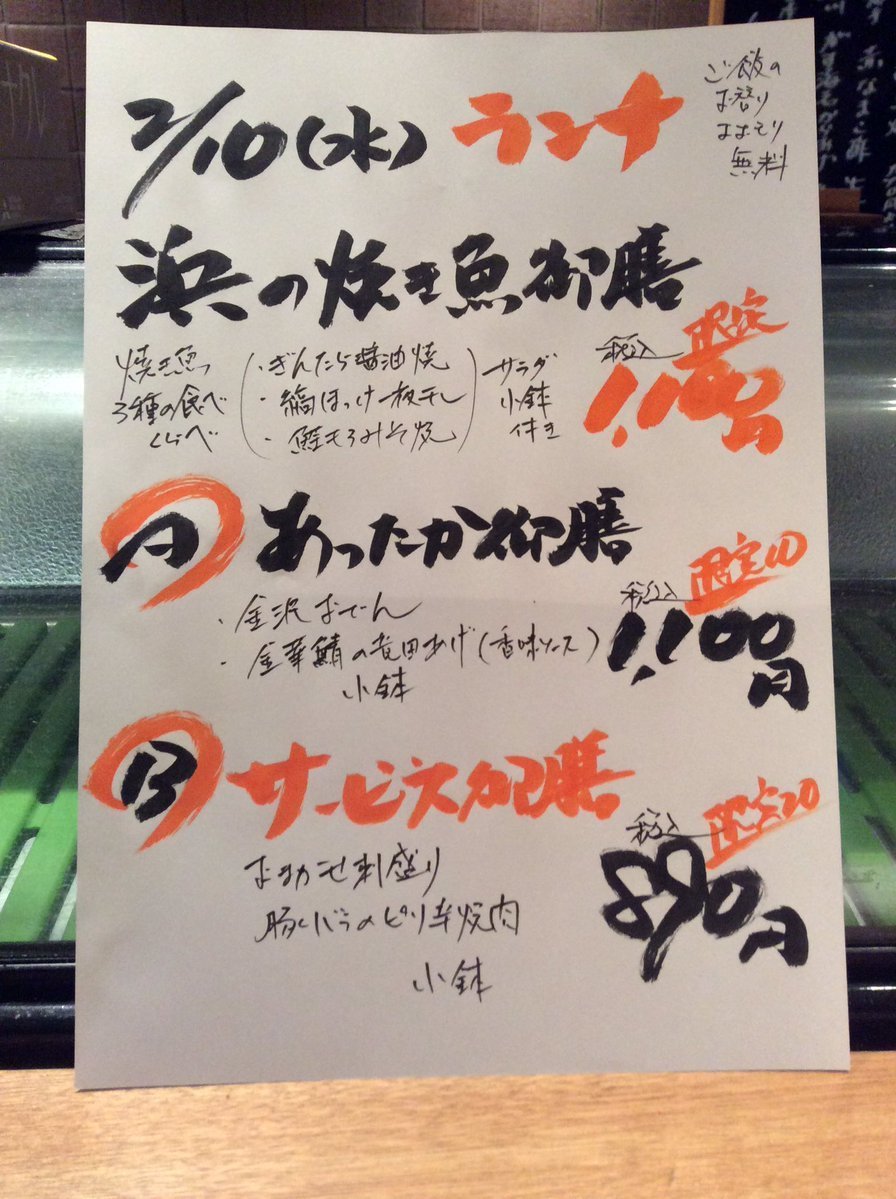 2/10(水) ランチ
ご飯の
お替り
大もり
無料
浜の焼き魚御膳
焼き魚
3種の食べ
くらべ
・ぎんたら醤油焼
・縞ほっけ一夜干し
・鮭もろみそ焼
サラダ
小鉢
付き
限定
税込
1,100円
A あったか御膳
・金沢おでん
・金華鯖の竜田あげ(香味ソース)
小鉢
限定10
税込
1,100円
B サービス御膳
おまかせ刺盛り
豚バラのピリ辛焼肉
小鉢
限定20
税込
890円